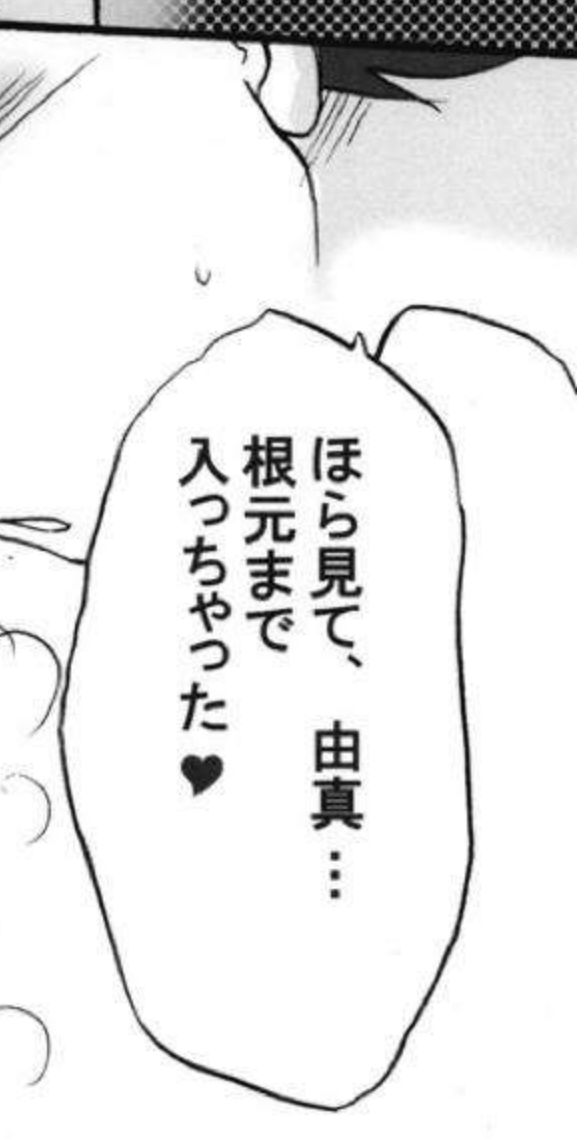 ほら見て、 由真…
根元まで
入っちゃった♥